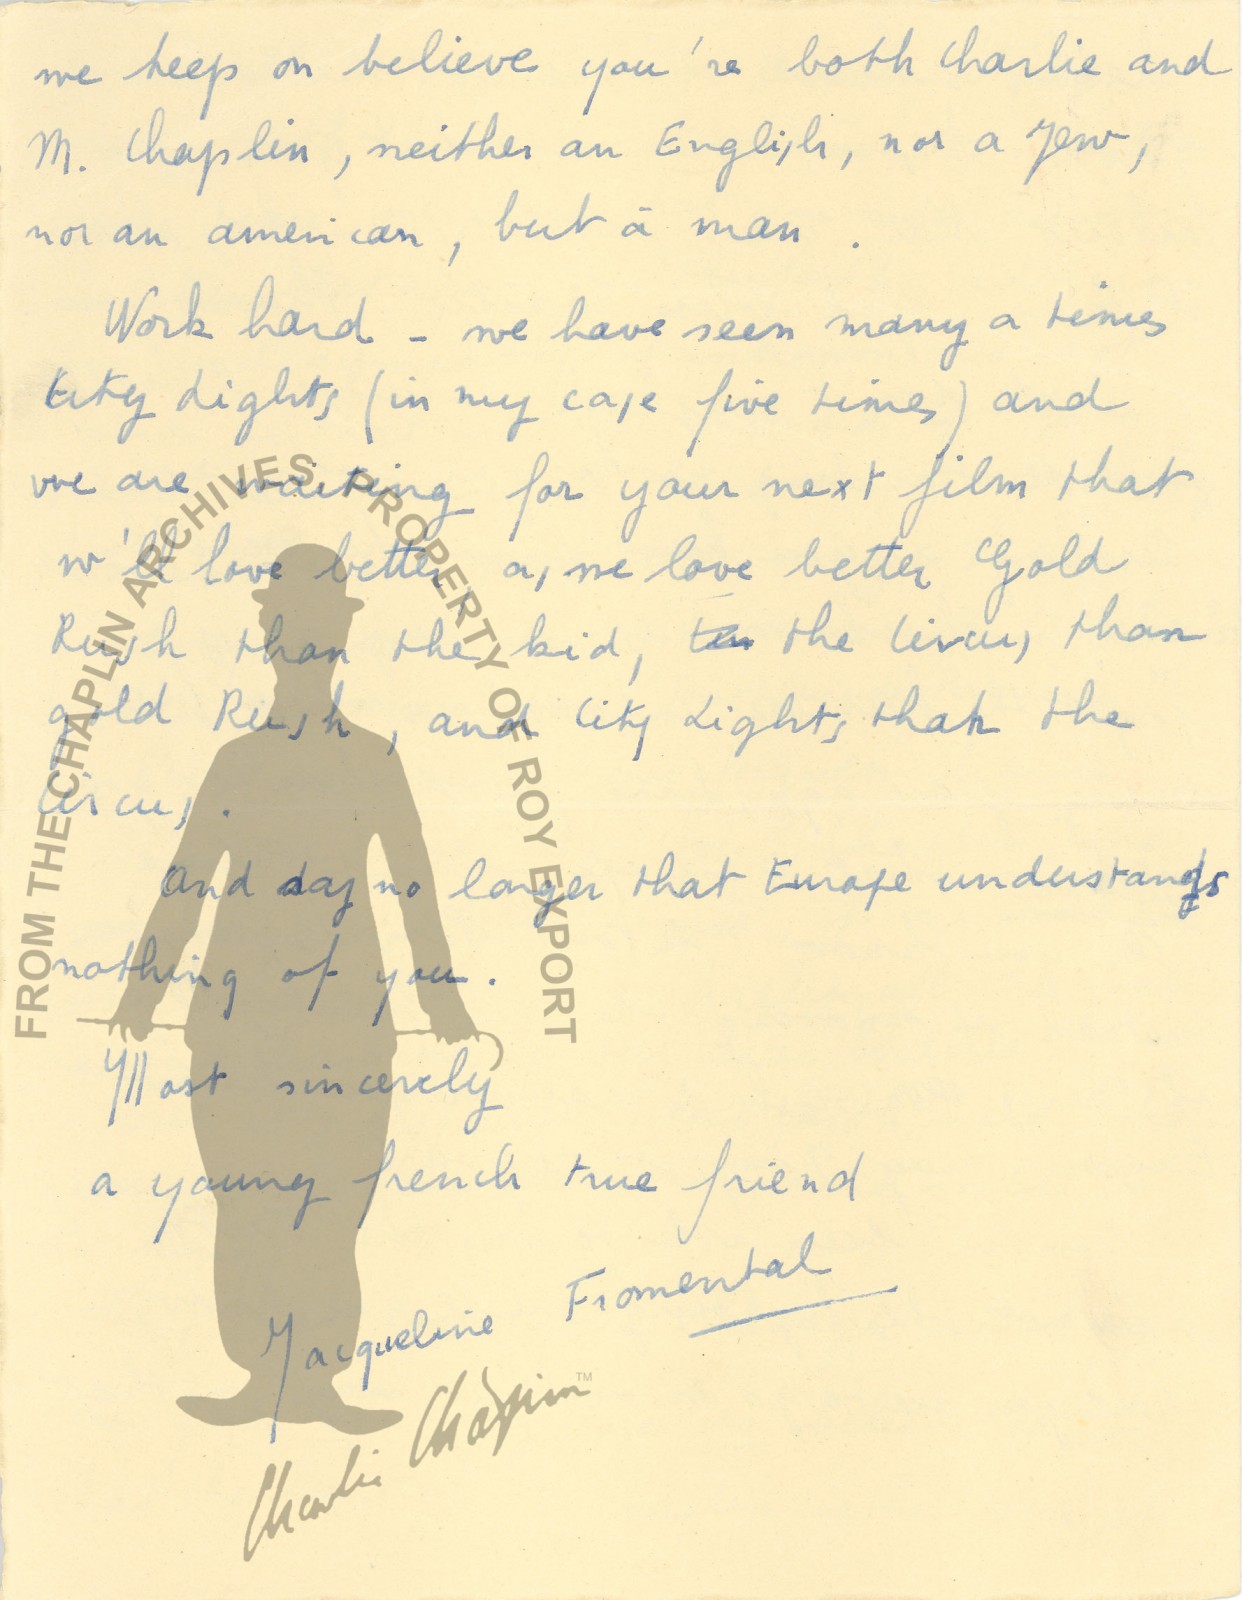 we keep on believe you're both Charlie and
M. Chaplin, neither an English, nor a Jew,
nor an american, but a man.
Work hard - we have seen many a times
City Lights (in my case five times) and
we are waiting for your next film that
w'll love better as we love better Gold
Rush than the kid, the Circus than
gold Rush, and City Lights than the
Circus.
And say no longer that Europe understands
nothing of you.
Most sincerely
a young french true friend
Jacqueline Fromental
FROM THE CHAPLIN ARCHIVES, PROPERTY OF ROY EXPORT
Charlie Chaplin™